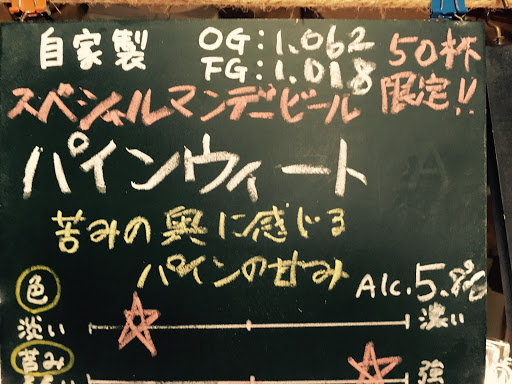 自家製 OG:1.062 50杯
FG:1.018 限定!!
スペシャルマンデービール
パインウィート
苦みの奥に感じる
パインの甘み Alc.5.8%
色
淡い 濃い
苦み
強